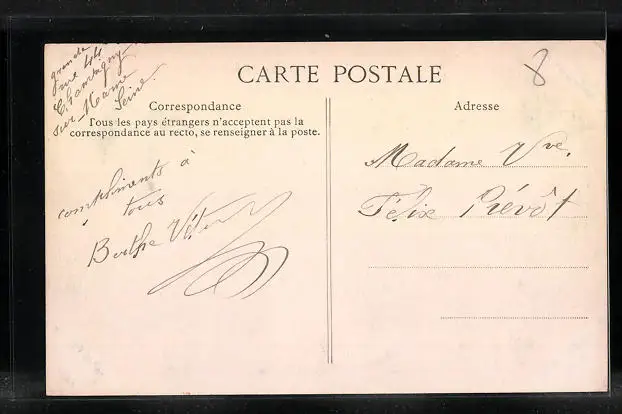 grande
rue 44
Champigny
sur-Marne
Seine.
8
CARTE POSTALE
Correspondance
Tous les pays étrangers n'acceptent pas la
correspondance au recto, se renseigner à la poste.
compliments à
tous
Berthe
Adresse
Madame Vve.
Félix Prévôt